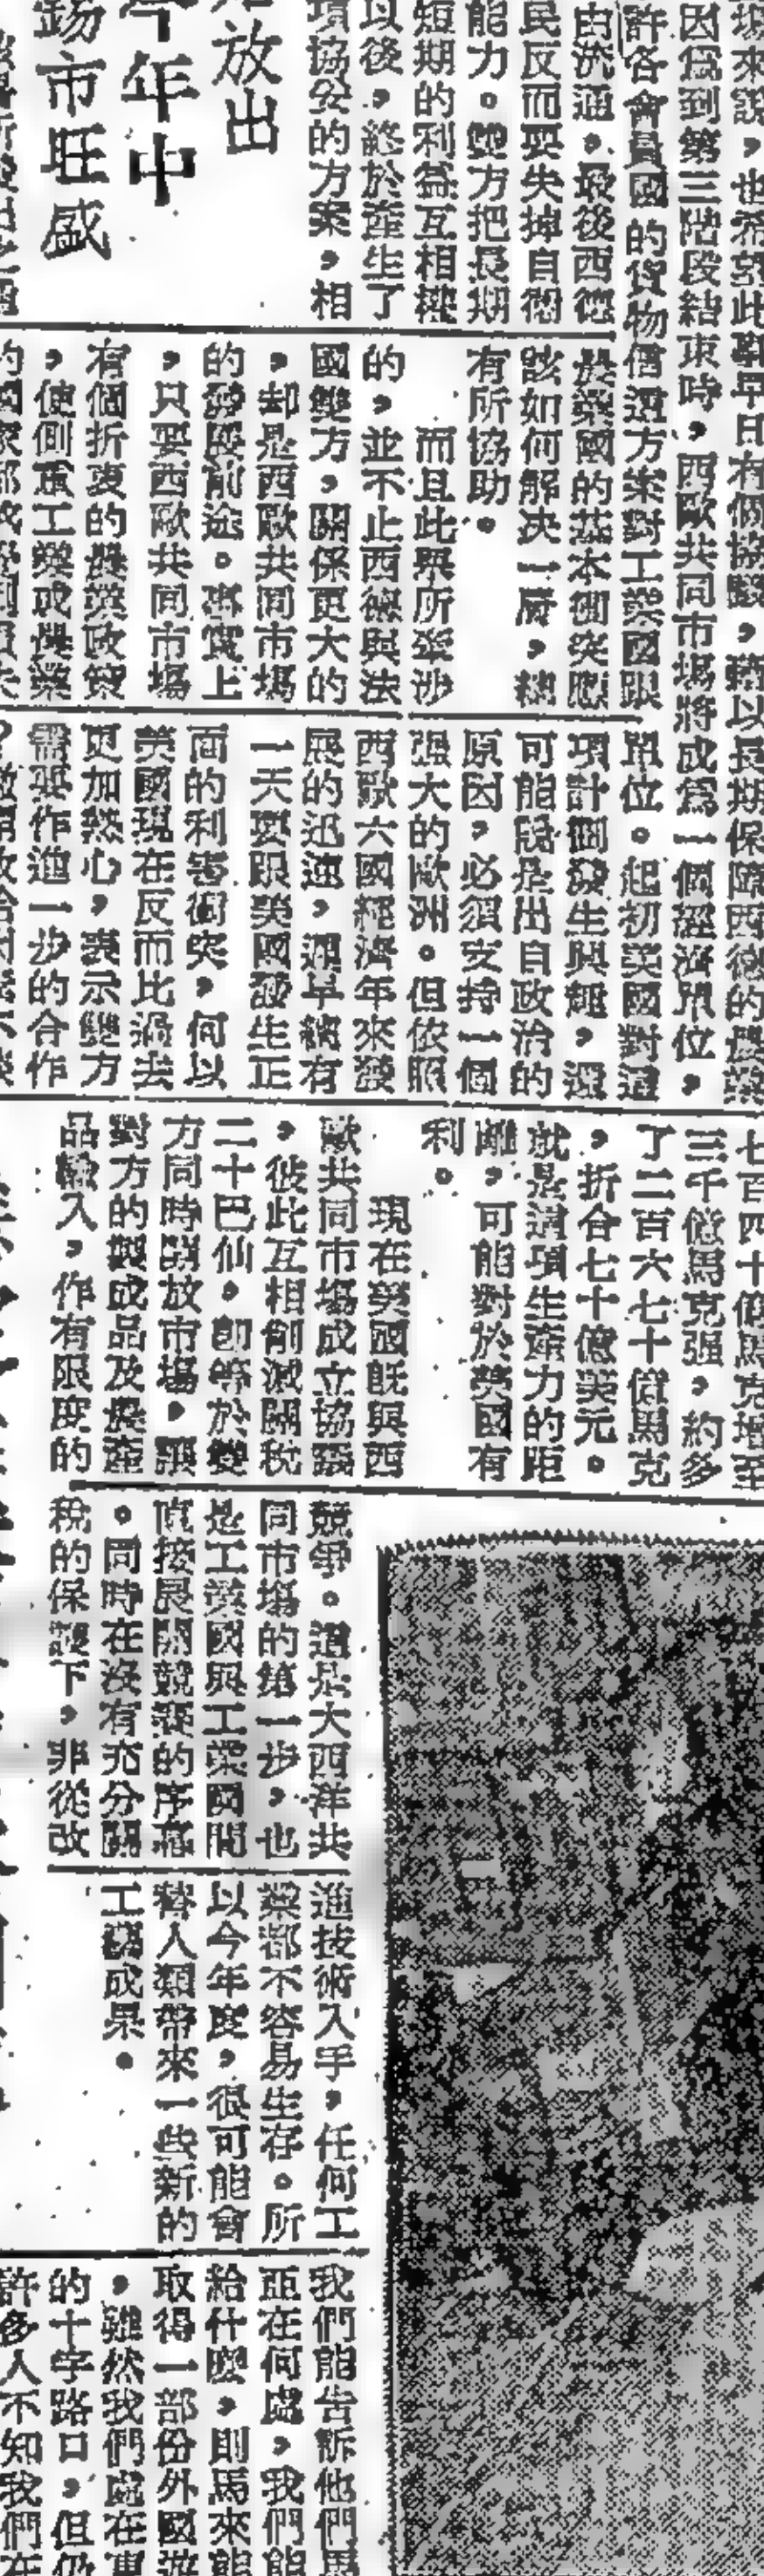 場來說，也希望此舉早日有個協議，藉以長期保障西德的農業
因爲到第三階段結束時，西歐共同市場將成爲一個經濟單位，
許各會員國的貨物
由流通。最後西德
民反而要失掉自衛
能力。雙方把長期
短期的利益互相
以後，終於產生了
項協公的方案，相
放出
今年中
錫市旺盛
信還方案對工業國跟
於業國的基本衝突應
該如何解決一層，總
有所協助。
而且此舉所牽沙
的，並不止西德與法
國雙方，關係更大的
，却是西歐共同市塲
的發展前途。事實上
，只要西歐共同市塲
有個折衷的農業政策
，使側重工業或農業
單位。起初美國對這
項計劃發生興趣，還
可能說是出自政治的
原因，必須支持一個
强大的歐洲。但依照
西歐六國經濟年來發
展的迅速，遲早總有
一天要跟美國發生正
面的利害衝突，何以
美國現在反而比過去
更加熱心，表示雙方
需要作進一步的合作
七百四十億馬克增至
三千億馬克强，約多
了二百六七十億馬克
，折合七十億美元。
就是這項生產力的距
離，可能對於美國有
利。
現在英國既與西
歐共同市塲成立協議
，彼此互相削減關税
二十巴仙。即等於雙
方同時開放市塲，讓
對方的製成品及農產
品輸入，作有限度的
競爭。這是大西洋共
同市塲的第一步，也
是工業國與工業國間
直接展開競賽的序幕
。同時在沒有充分關
税的保護下，非從改
進技術入手，任何工
業都不容易生存。所
以今年度，很可能會
替人類帶來一些新的
工藝成果。
我們能告訴他們馬
亞在何處，我們能
給什麼，則馬來能
取得一部份外國遊
，雖然我們處在東
的十字路口，但仍
許多人不知我們在